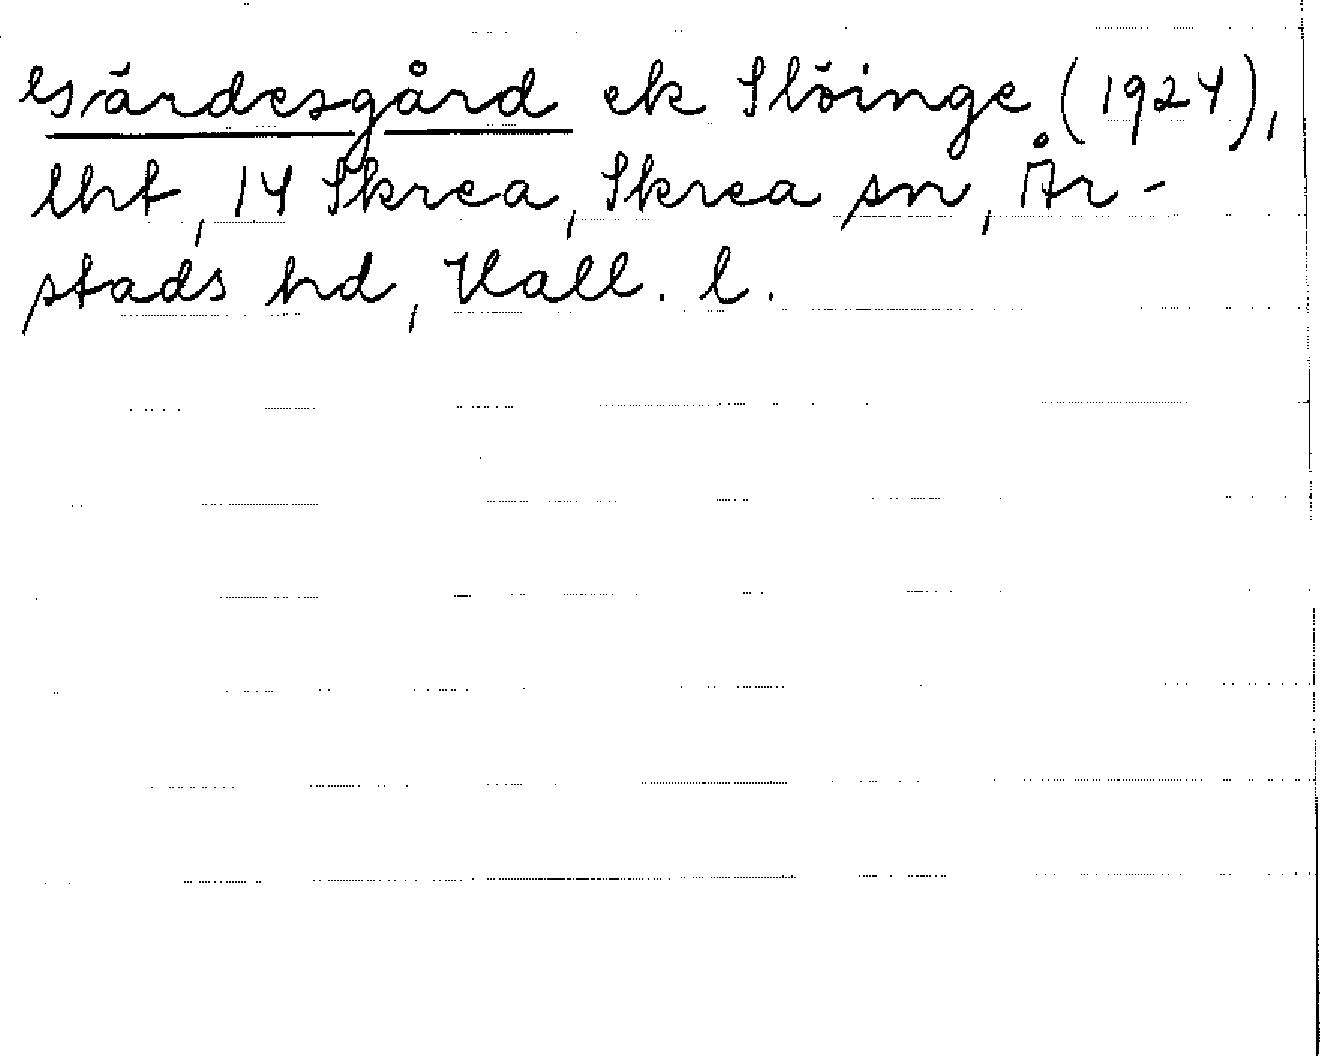 Gärdesgård ek Slöinge (1924),
lht, 14 Skrea, Skrea sn, År-
stads hd, Hall. l.